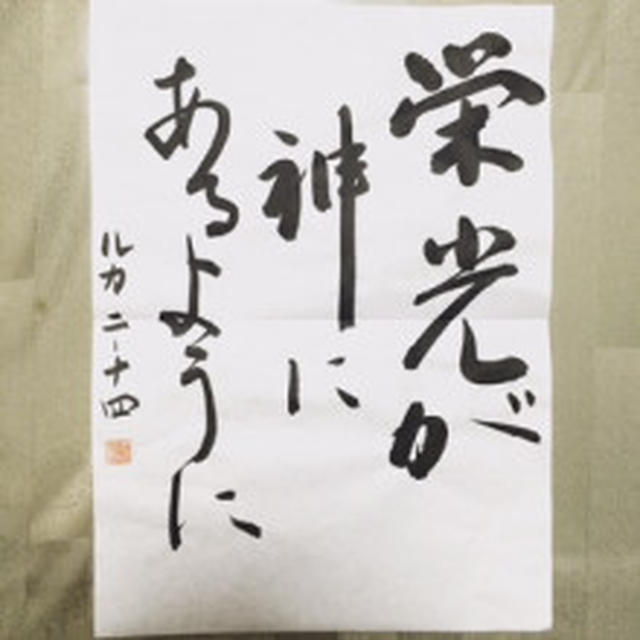 栄光が
神に
あるように
ルカ二-十四